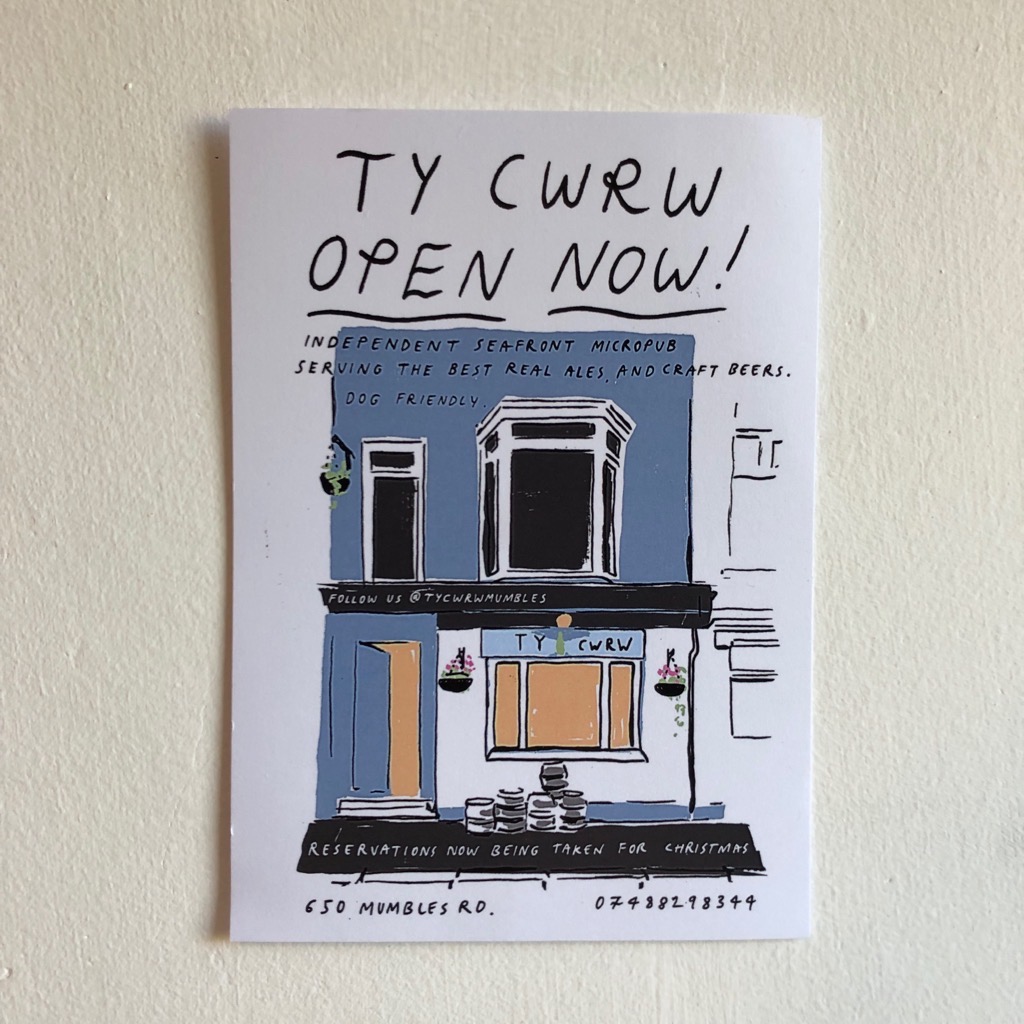 TY CWRW
OPEN NOW!
INDEPENDENT SEAFRONT MICROPUB
SERVING THE BEST REAL ALES, AND CRAFT BEERS.
DOG FRIENDLY.
FOLLOW US @TYCWRWMUMBLES
TY CWRW
RESERVATIONS NOW BEING TAKEN FOR CHRISTMAS
650 MUMBLES RD.
07488298344